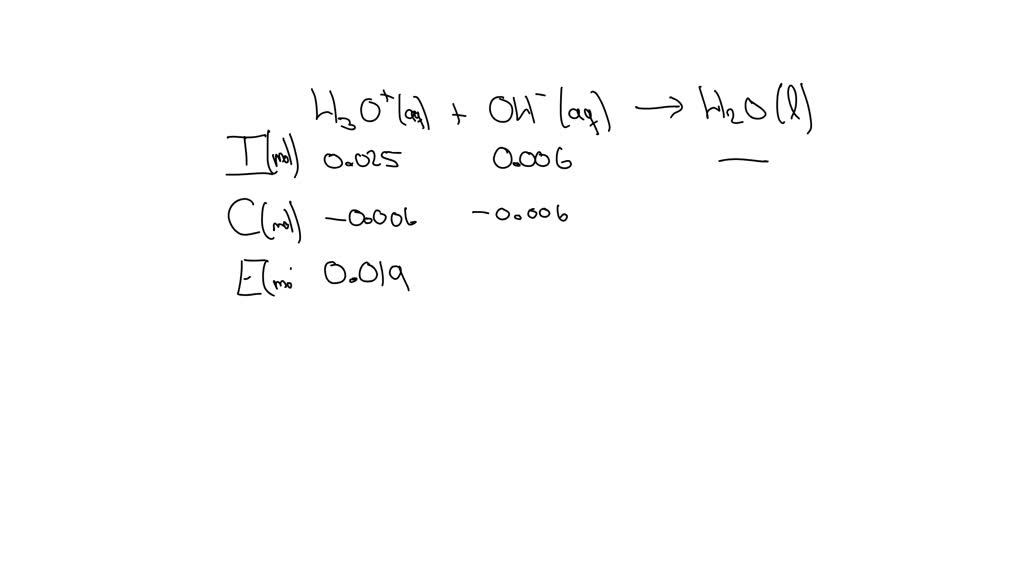 H₃O⁺(aq) + OH⁻(aq) → H₂O(l)
I(mol) 0.025 0.006 —
C(mol) -0.006 -0.006
E(mo 0.019